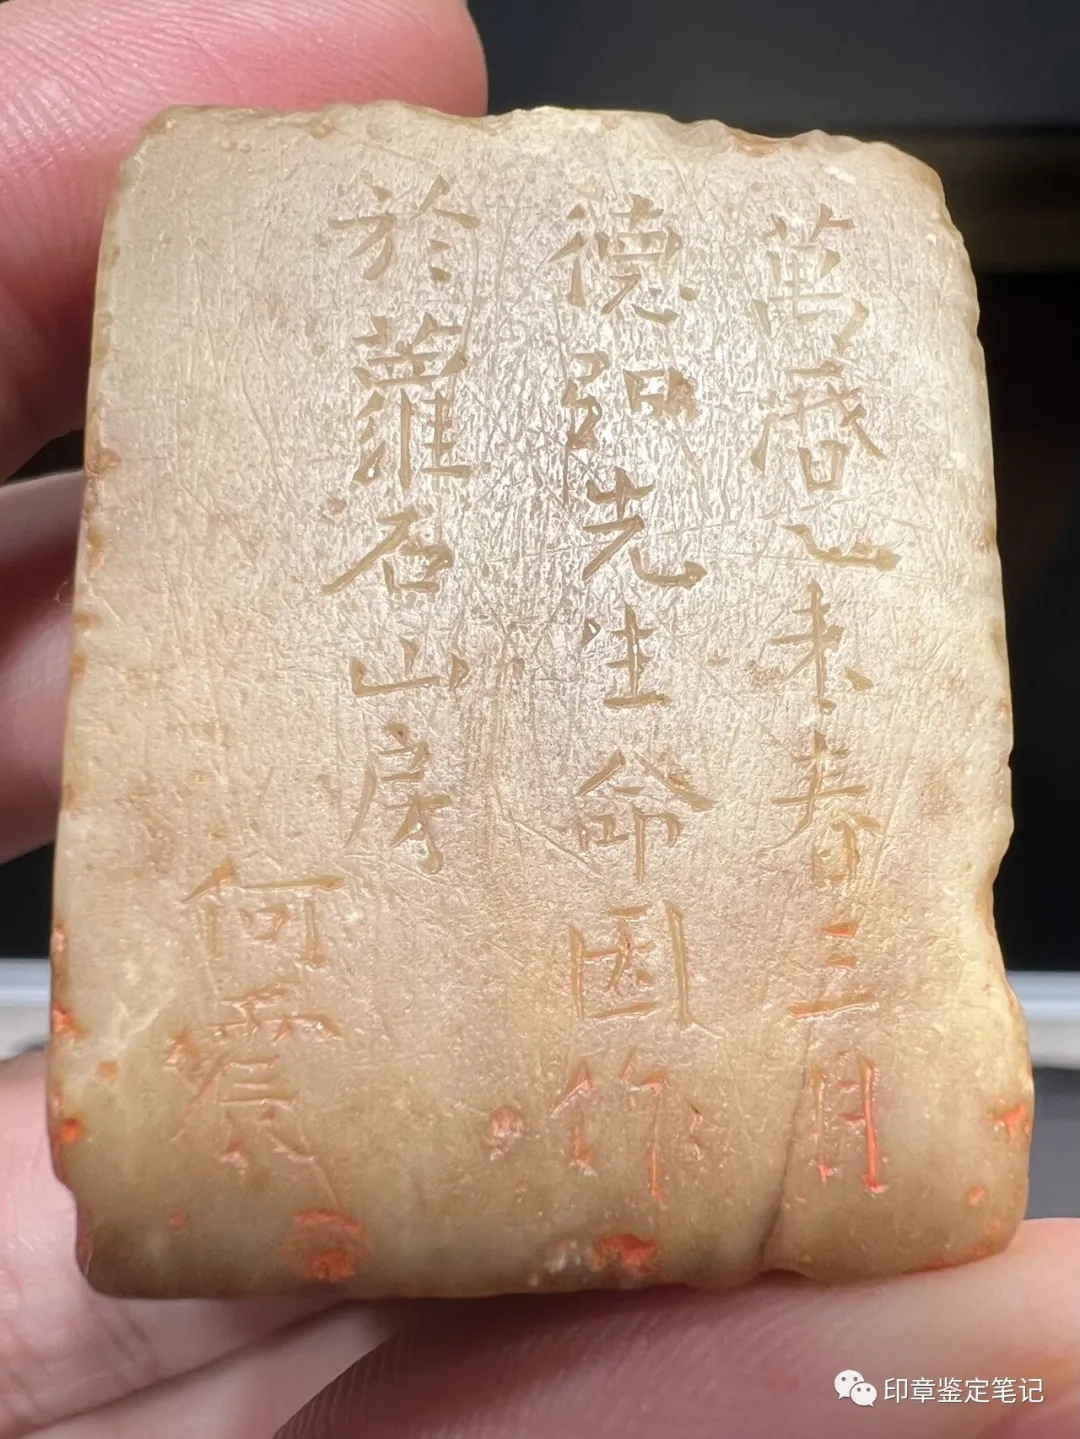 萬曆乙未春三月
德先生命因作
於蘿石山房
何震
印章鉴定笔记